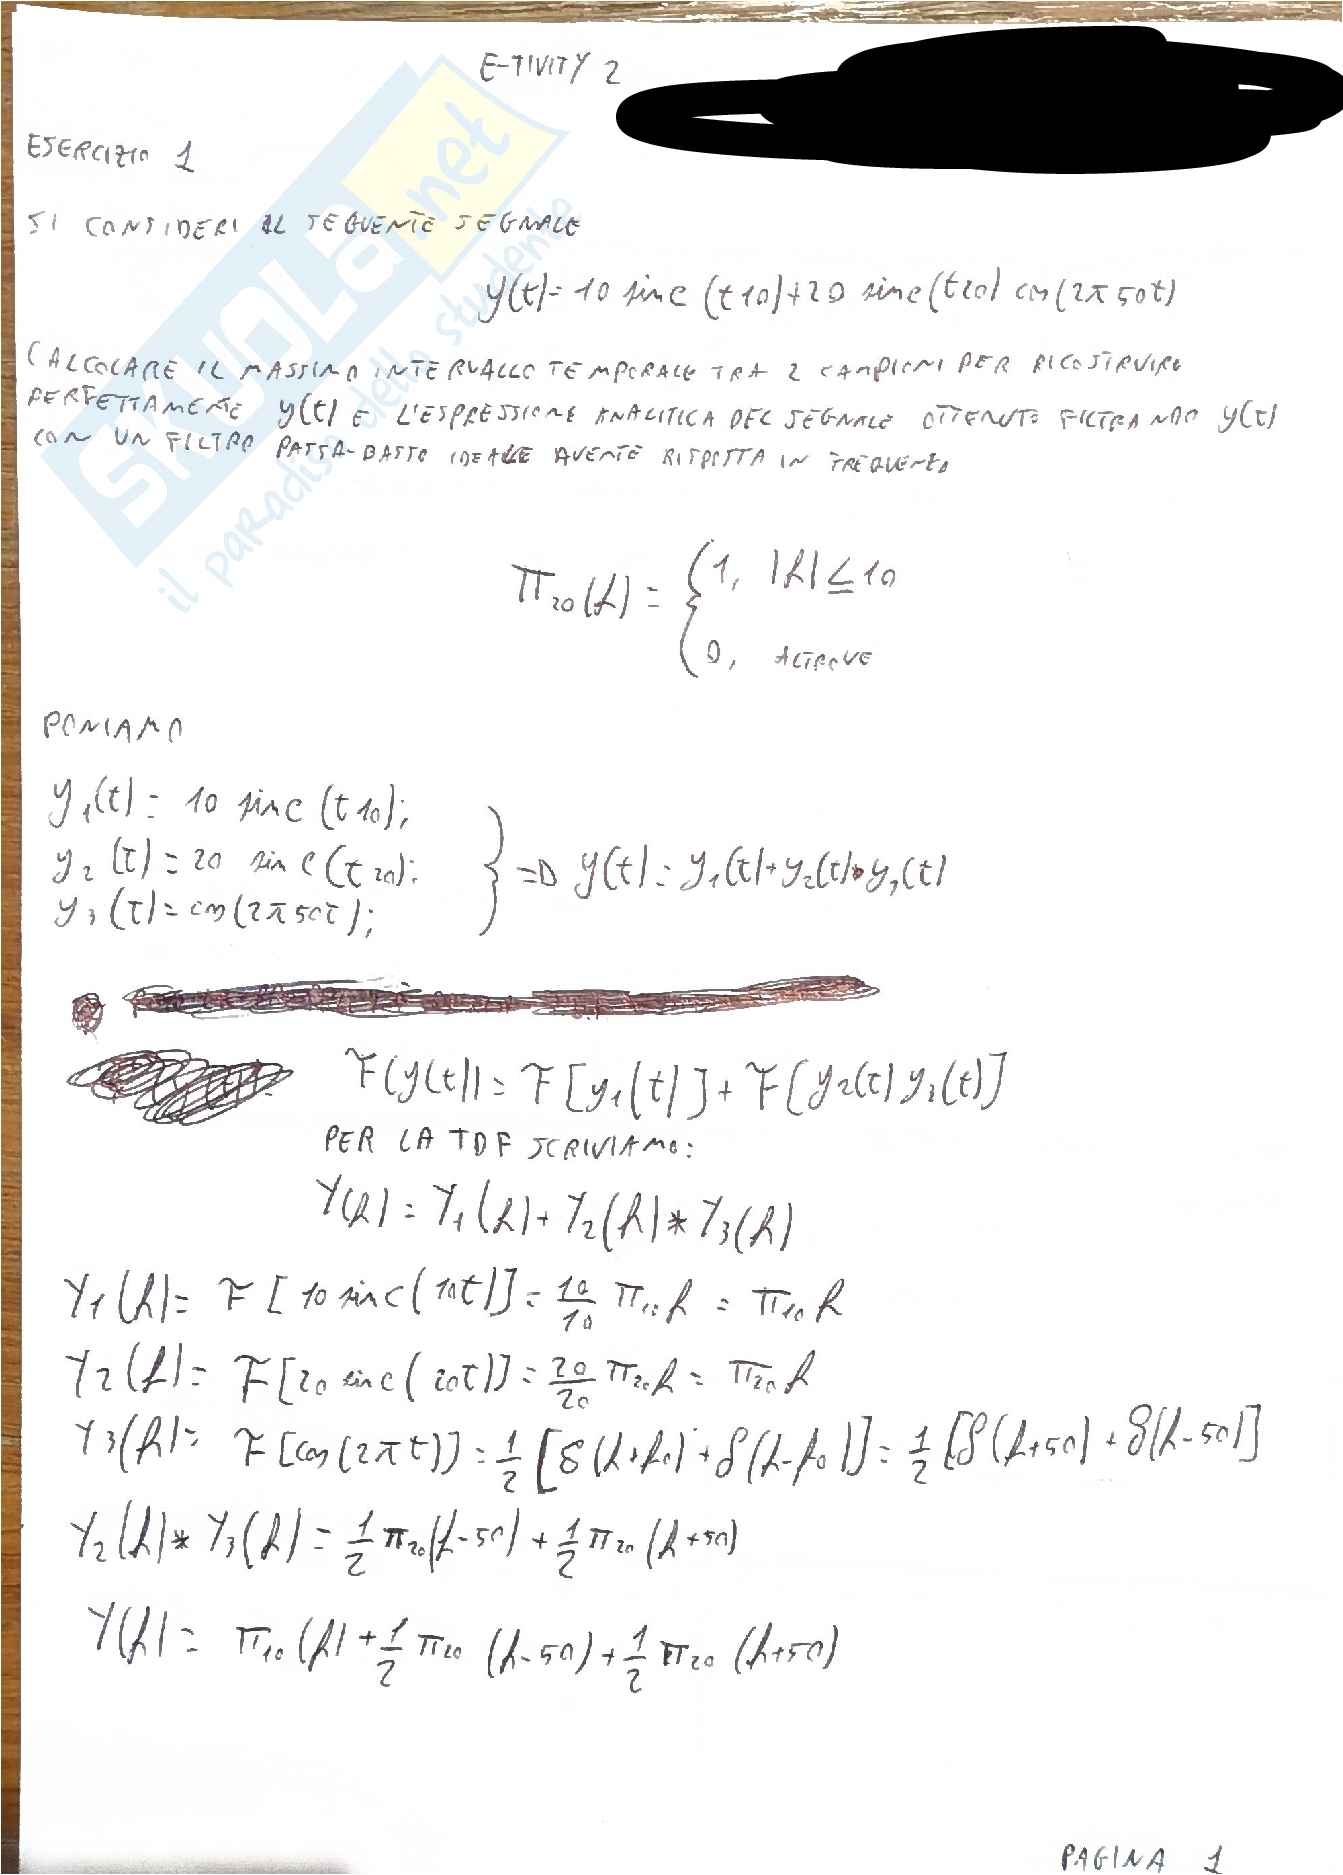 E-TIVITY 2
ESERCIZIO 1
SI CONSIDERI IL SEGUENTE SEGNALE
y(t)= 10 sinc (t10)+20 sinc(t20) cos(2π50t)
CALCOLARE IL MASSIMO INTERVALLO TEMPORALE TRA 2 CAMPIONI PER RICOSTRUIRE
PERFETTAMENTE y(t) E L'ESPRESSIONE ANALITICA DEL SEGNALE OTTENUTO FILTRANDO y(t)
CON UN FILTRO PASSA-BASSO IDEALE AVENTE RISPOSTA IN FREQUENZA
Π20(f) = { 1, |f| ≤ 10
0, ALTROVE
PONIAMO
y1(t) = 10 sinc (t10);
y2(t) = 20 sinc(t20); } => y(t) = y1(t)+y2(t)•y3(t)
y3(t) = cos(2π50t);
F(y(t)) = F[y1(t)] + F[y2(t) y3(t)]
PER LA TDF SCRIVIAMO:
Y(f) = Y1(f) + Y2(f) * Y3(f)
Y1(f) = F[10 sinc(10t)] = 10/10 Π10 f = Π10 f
Y2(f) = F[20 sinc(20t)] = 20/20 Π20 f = Π20 f
Y3(f) = F[cos(2πt)] = 1/2 [δ(f+f0) + δ(f-f0)] = 1/2 [δ(f+50) + δ(f-50)]
Y2(f) * Y3(f) = 1/2 Π20(f-50) + 1/2 Π20 (f+50)
Y(f) = Π10 (f) + 1/2 Π20 (f-50) + 1/2 Π20 (f+50)
PAGINA 1
SKUOLA.net
il paradiso dello studente